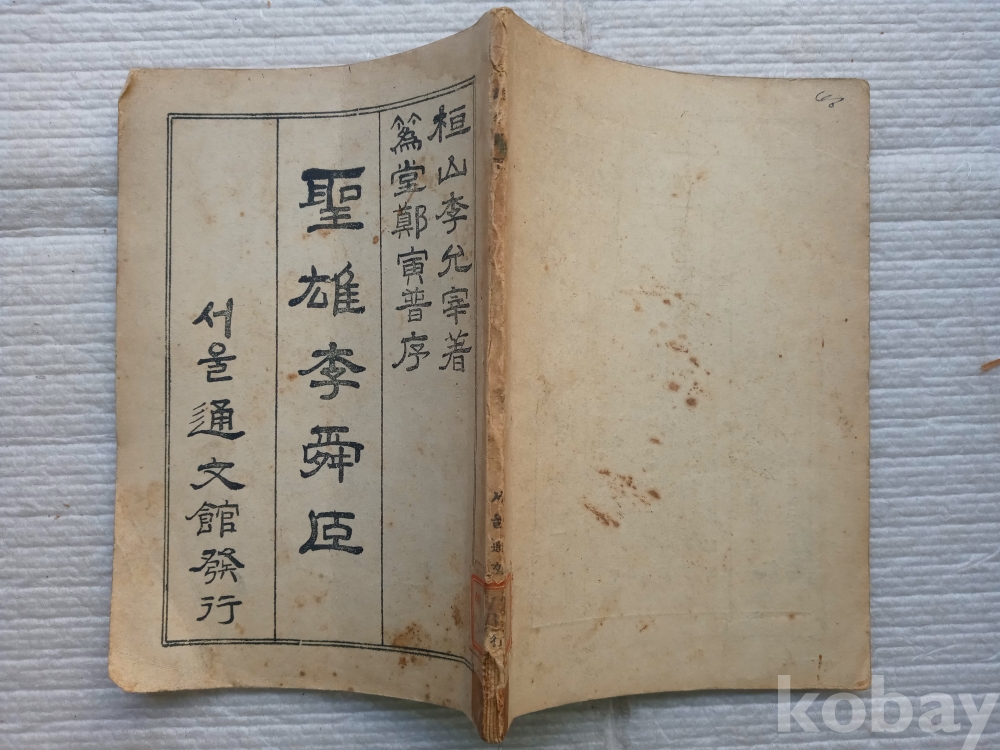 桓山李允宰著
爲堂鄭寅普序
聖雄李舜臣
서울通文館發行
kobay